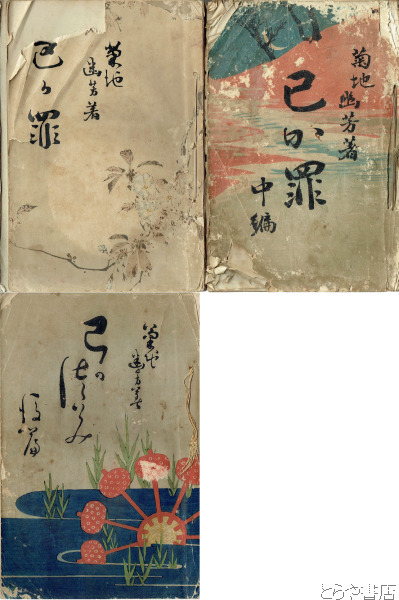 菊地
幽芳著
己が罪
菊地幽芳著
己が罪
中編
菊地
幽芳著
己の
つみ
後篇
とらや書店